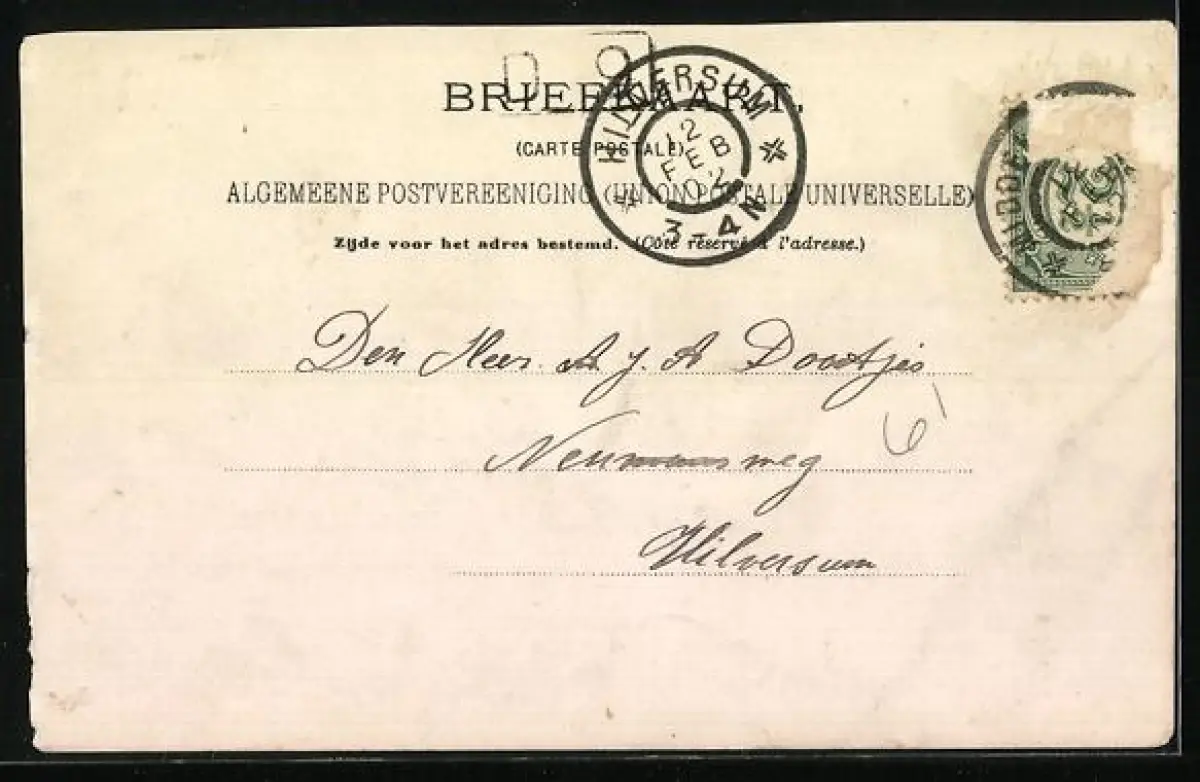 BRIEFKAART.
(CARTE POSTALE)
ALGEMEENE POSTVEREENIGING (UNION POSTALE UNIVERSELLE)
Zijde voor het adres bestemd. (Côté réservé à l'adresse.)
HILVERSUM
12
FEB
02
3-4N
MIDD
Den Heer. A. J. A Dootjes
6
weg
Hilversum